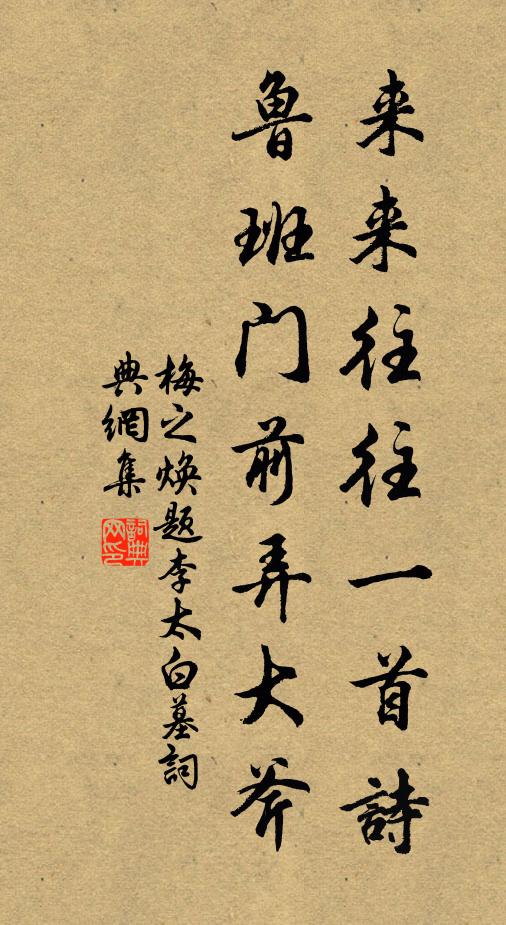 来来往往一首詩
魯班门前弄大斧
梅之焕題李太白墓詞
典網集
詞典
网印